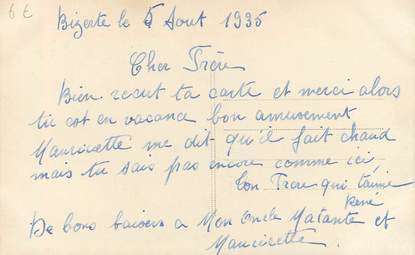 6 €
Bizerte le 5 Aout 1935
Cher Frère
Bien recut ta carte et merci alors
tu est en vacance bon amusement
Mauricette me dit qu'il fait chaud
mais tu sais pas encore comme ici,
Ton Frere qui t'aime
René
De bons baisers a Mon Oncle Matante et
Mauricette.